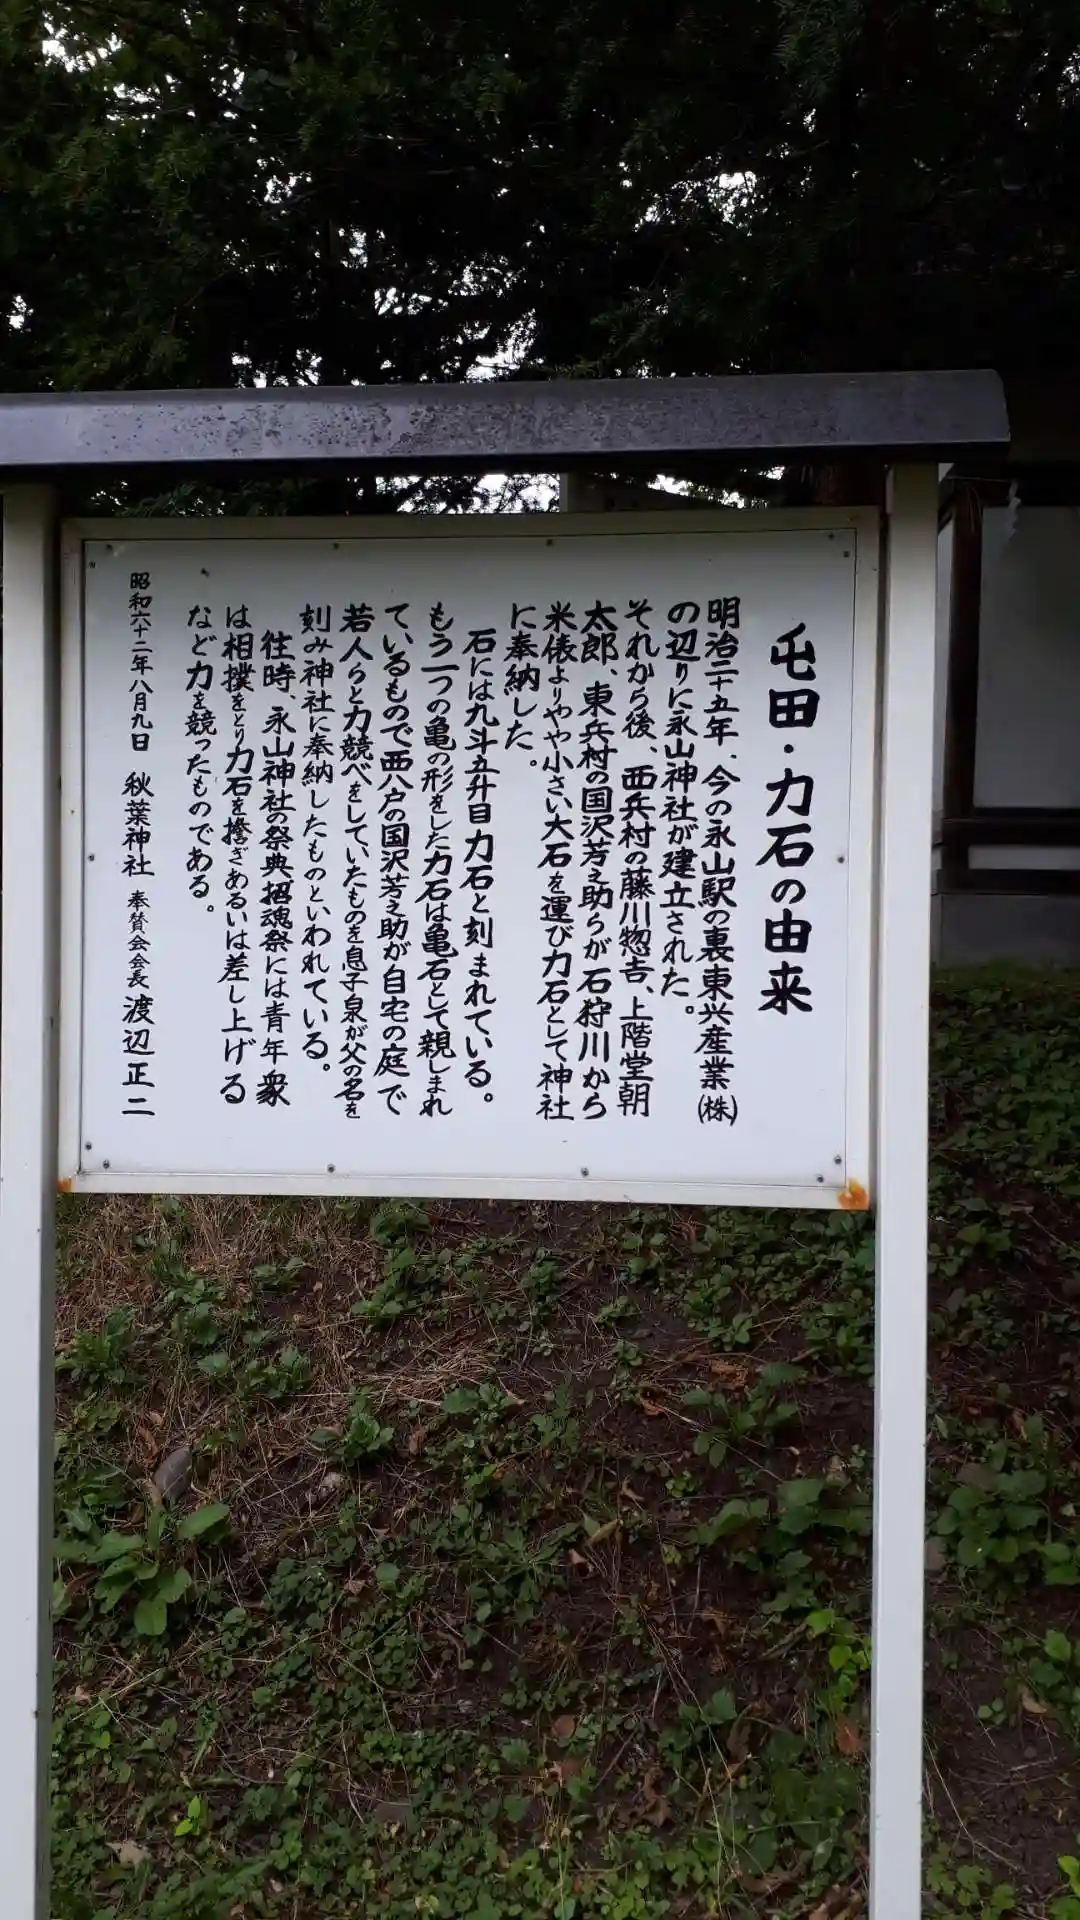 屯田・力石の由来
明治二十五年、今の永山駅の裏東兴産業(株)
の辺りに永山神社が建立された。
それから後、西兵村の藤川惣吉、上階堂朝
太郎、東兵村の国沢芳之助らが石狩川から
米俵よりやや小さい大石を運び力石として神社
に奉納した。
石には九斗五升目力石と刻まれている。
もう一つの亀の形をした力石は亀石として親しまれ
ているもので西八戸の国沢芳之助が自宅の庭で
若人らと力競べをしていたものを息子泉が父の名を
刻み神社に奉納したものといわれている。
往時、永山神社の祭典招魂祭には青年衆
は相撲をとり力石を擔ぎあるいは差し上げる
など力を競ったものである。
昭和六十二年八月九日 秋葉神社 奉賛会会長 渡辺正二